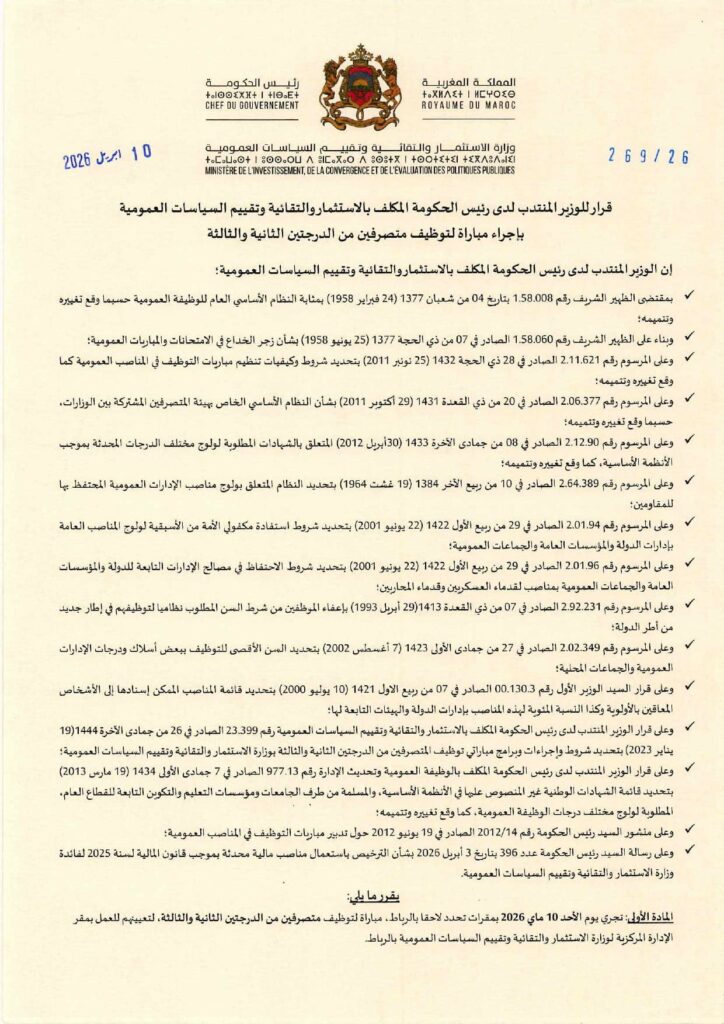 المملكة المغربية
ⵜⴰⴳⵍⴷⵉⵜ ⵏ ⵍⵎⵖⵔⵉⴱ
ROYAUME DU MAROC
رئيس الحكومة
CHEF DU GOUVERNEMENT
وزارة الاستثمار والتقائية وتقييم السياسات العمومية
MINISTÈRE DE L'INVESTISSEMENT, DE LA CONVERGENCE ET DE L'ÉVALUATION DES POLITIQUES PUBLIQUES
269/26
10 ابريل 2026
قرار للوزير المنتدب لدى رئيس الحكومة المكلف بالاستثمار والتقائية وتقييم السياسات العمومية
بإجراء مباراة لتوظيف متصرفين من الدرجتين الثانية والثالثة
إن الوزير المنتدب لدى رئيس الحكومة المكلف بالاستثمار والتقائية وتقييم السياسات العمومية؛
✓ بمقتضى الظهير الشريف رقم 1.58.008 بتاريخ 04 من شعبان 1377 (24 فبراير 1958) بمثابة النظام الأساسي العام للوظيفة العمومية حسبما وقع تغييره
وتتميمه؛
✓ وبناء على الظهير الشريف رقم 1.58.060 الصادر في 07 من ذي الحجة 1377 (25 يونيو 1958) بشأن زجر الخداع في الامتحانات والمباريات العمومية؛
✓ وعلى المرسوم رقم 2.11.621 الصادر في 28 ذي الحجة 1432 (25 نونبر 2011) بتحديد شروط وكيفيات تنظيم مباريات التوظيف في المناصب العمومية كما
وقع تغييره وتتميمه؛
✓ وعلى المرسوم رقم 2.06.377 الصادر في 20 من ذي القعدة 1431 (29 أكتوبر 2011) بشأن النظام الأساسي الخاص بهيئة المتصرفين المشتركة بين الوزارات،
حسبما وقع تغييره وتتميمه؛
✓ وعلى المرسوم رقم 2.12.90 الصادر في 08 من جمادى الآخرة 1433 (30أبريل 2012) المتعلق بالشهادات المطلوبة لولوج مختلف الدرجات المحدثة بموجب
الأنظمة الأساسية، كما وقع تغييره وتتميمه؛
✓ وعلى المرسوم رقم 2.64.389 الصادر في 10 من ربيع الآخر 1384 (19 غشت 1964) بتحديد النظام المتعلق بولوج مناصب الإدارات العمومية المحتفظ بها
للمقاومين؛
✓ وعلى المرسوم رقم 2.01.94 الصادر في 29 من ربيع الأول 1422 (22 يونيو 2001) بتحديد شروط استفادة مكفولي الأمة من الأسبقية لولوج المناصب العامة
بإدارات الدولة والمؤسسات العامة والجماعات العمومية؛
✓ وعلى المرسوم رقم 2.01.96 الصادر في 29 من ربيع الأول 1422 (22 يونيو 2001) بتحديد شروط الاحتفاظ في مصالح الإدارات التابعة للدولة والمؤسسات
العامة والجماعات العمومية بمناصب لقدماء العسكريين وقدماء المحاربين؛
✓ وعلى المرسوم رقم 2.92.231 الصادر في 07 من ذي القعدة 1413(29 أبريل 1993) بإعفاء الموظفين من شرط السن المطلوب نظاميا لتوظيفهم في إطار جديد
من أطر الدولة؛
✓ وعلى المرسوم رقم 2.02.349 الصادر في 27 من جمادى الأولى 1423 (7 أغسطس 2002) بتحديد السن الأقصى للتوظيف ببعض أسلاك ودرجات الإدارات
العمومية والجماعات المحلية؛
✓ وعلى قرار السيد الوزير الأول رقم 00.130.3 الصادر في 07 من ربيع الاول 1421 (10 يوليو 2000) بتحديد قائمة المناصب الممكن إسنادها إلى الأشخاص
المعاقين بالأولوية وكذا النسبة المئوية لهذه المناصب بإدارات الدولة والهيئات التابعة لها؛
✓ وعلى قرار الوزير المنتدب لدى رئيس الحكومة المكلف بالاستثمار والتقائية وتقييم السياسات العمومية رقم 23.399 الصادر في 26 من جمادى الآخرة 1444(19
يناير 2023) بتحديد شروط وإجراءات وبرامج مباراتي توظيف المتصرفين من الدرجتين الثانية والثالثة بوزارة الاستثمار والتقائية وتقييم السياسات العمومية؛
✓ وعلى قرار الوزير المنتدب لدى رئيس الحكومة المكلف بالوظيفة العمومية وتحديث الإدارة رقم 977.13 الصادر في 7 جمادى الأولى 1434 (19 مارس 2013)
بتحديد قائمة الشهادات الوطنية غير المنصوص عليها في الأنظمة الأساسية، والمسلمة من طرف الجامعات ومؤسسات التعليم والتكوين التابعة للقطاع العام،
المطلوبة لولوج مختلف درجات الوظيفة العمومية، كما وقع تغييره وتتميمه؛
✓ وعلى منشور السيد رئيس الحكومة رقم 2012/14 الصادر في 19 يونيو 2012 حول تدبير مباريات التوظيف في المناصب العمومية؛
✓ وعلى رسالة السيد رئيس الحكومة عدد 396 بتاريخ 3 أبريل 2026 بشأن الترخيص باستعمال مناصب مالية محدثة بموجب قانون المالية لسنة 2025 لفائدة
وزارة الاستثمار والتقائية وتقييم السياسات العمومية.
يقرر ما يلي:
المادة الأولى: تجري يوم الأحد 10 ماي 2026 بمقرات تحدد لاحقا بالرباط، مباراة لتوظيف متصرفين من الدرجتين الثانية والثالثة، لتعيينهم للعمل بمقر
الإدارة المركزية لوزارة الاستثمار والتقائية وتقييم السياسات العمومية بالرباط.